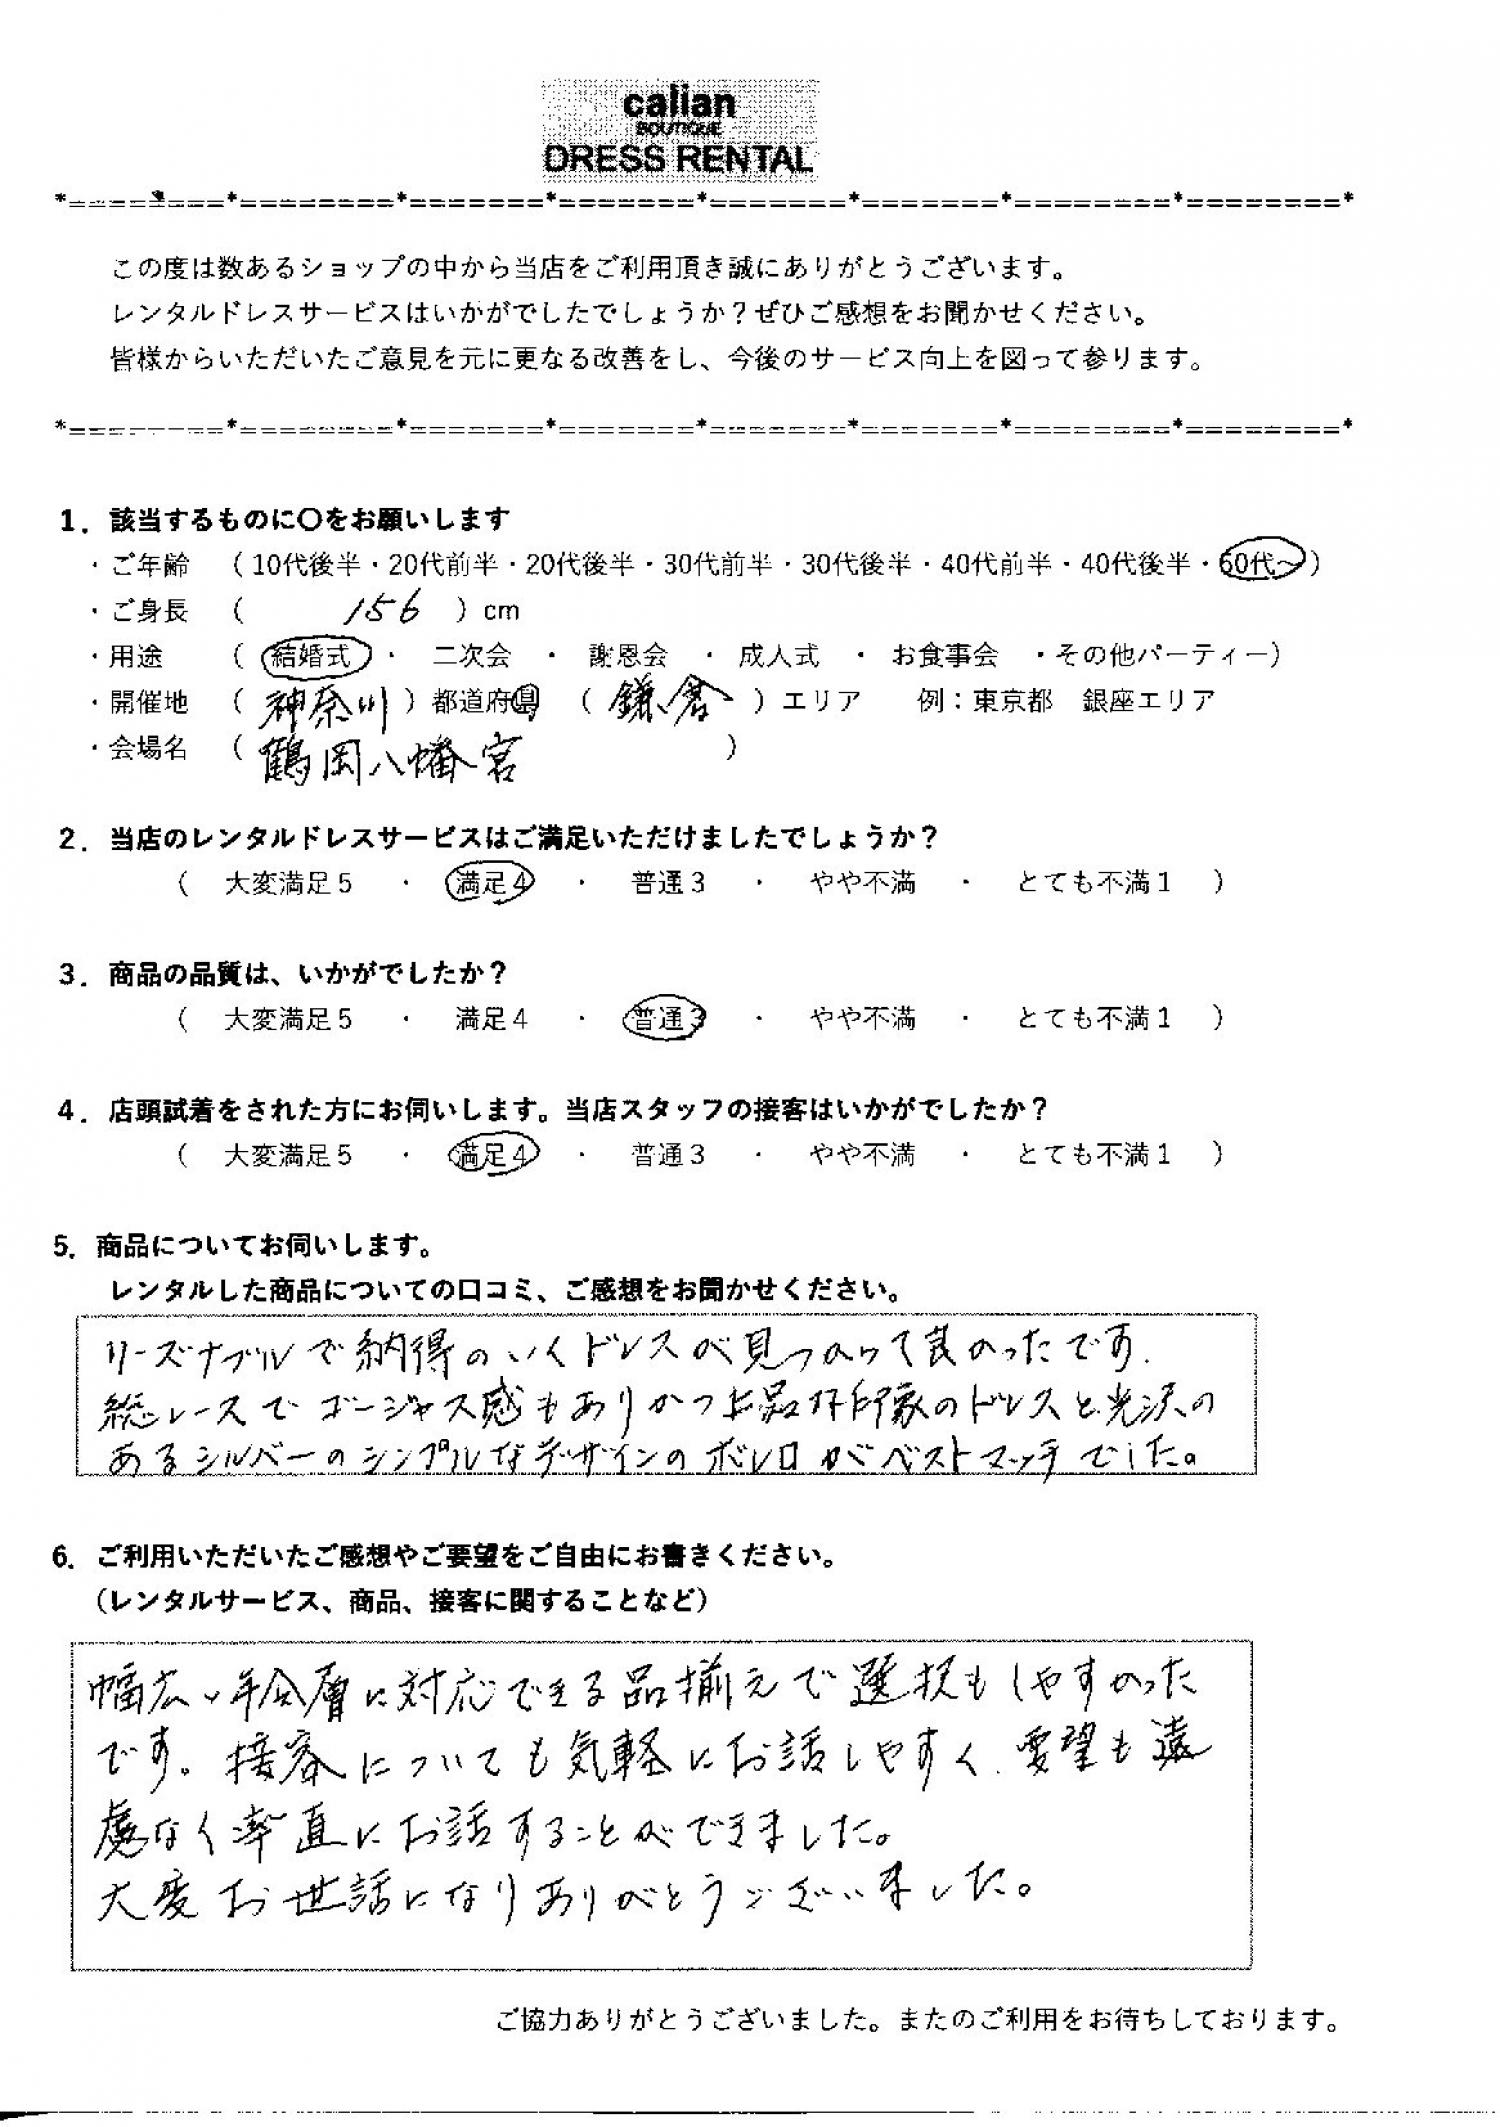 calian
BOUTIQUE
DRESS RENTAL
*========*========*=======*=======*=======*=======*========*========*
この度は数あるショップの中から当店をご利用頂き誠にありがとうございます。
レンタルドレスサービスはいかがでしたでしょうか？ぜひご感想をお聞かせください。
皆様からいただいたご意見を元に更なる改善をし、今後のサービス向上を図って参ります。
*========*========*=======*=======*=======*=======*========*========*
1．該当するものに〇をお願いします
・ご年齢　（10代後半・20代前半・20代後半・30代前半・30代後半・40代前半・40代後半・50代～）
・ご身長　（　156　）cm
・用途　（　結婚式　・　二次会　・　謝恩会　・　成人式　・　お食事会　・その他パーティー）
・開催地　（　神奈川　）都道府県　（　鎌倉　）エリア　例：東京都　銀座エリア
・会場名　（　鶴岡八幡宮　）
2．当店のレンタルドレスサービスはご満足いただけましたでしょうか？
（　大変満足５　・　満足４　・　普通３　・　やや不満　・　とても不満１　）
3．商品の品質は、いかがでしたか？
（　大変満足５　・　満足４　・　普通３　・　やや不満　・　とても不満１　）
4．店頭試着をされた方にお伺いします。当店スタッフの接客はいかがでしたか？
（　大変満足５　・　満足４　・　普通３　・　やや不満　・　とても不満１　）
5．商品についてお伺いします。
レンタルした商品についての口コミ、ご感想をお聞かせください。
リーズナブルで納得のいくドレスが見つかって良かったです.
総レースでゴージャス感もありかつ上品な印象のドレスと光沢の
あるシルバーのシンプルなデザインのボレロがベストマッチでした。
6．ご利用いただいたご感想やご要望をご自由にお書きください。
（レンタルサービス、商品、接客に関することなど）
幅広い年令層に対応できる品揃えで選択もしやすかった
です。接客についても気軽にお話しやすく、要望も遠
慮なく率直にお話することができました。
大変お世話になりありがとうございました。
ご協力ありがとうございました。またのご利用をお待ちしております。